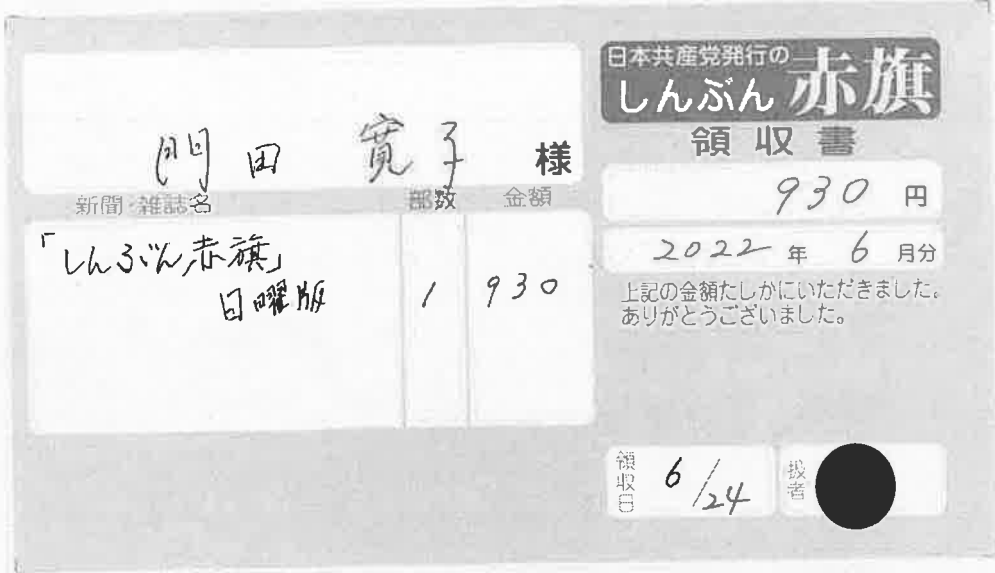 門田 寛子 様
新聞・雑誌名 部数 金額
「しんぶん赤旗」
日曜版 1 930
日本共産党発行の
しんぶん赤旗
領収書
930 円
2022 年 6 月分
上記の金額たしかにいただきました。
ありがとうございました。
領収日 6/24 扱者